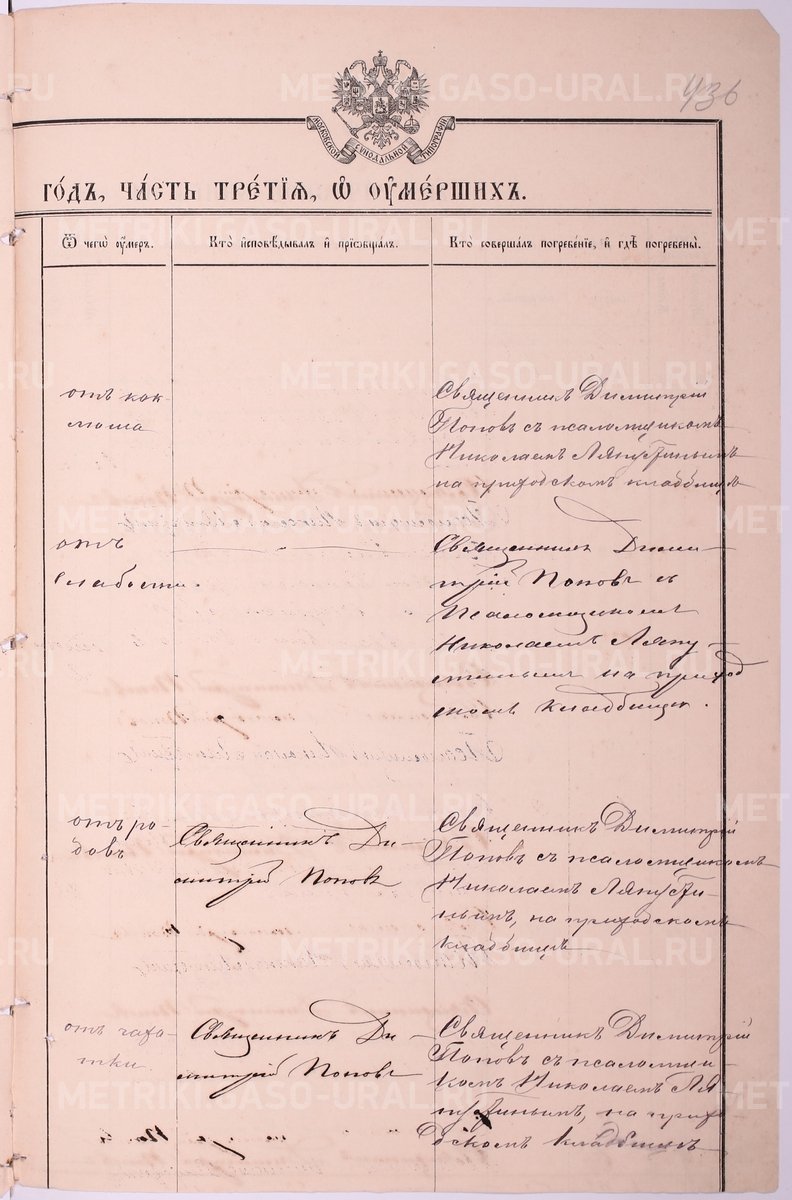 436
МОСКОВСКОЙ СѴНОДАЛЬНОЙ ТИПОГРАФІИ
ГО́ДЪ, ЧА́СТЬ ТРЕ́ТІЯ, Ѽ ОУ҆МЕ́РШИХЪ.
Ѿ чегѡ̀ оу҆́меръ.
Кто̀ и҆сповѣ́дывалъ и҆ прїѡбща́лъ.
Кто̀ соверша́лъ погребе́нїе, и҆ гдѣ̀ погребены̀.
отъ кок-
люша
Священникъ Димитрій
Поповъ съ псаломщикомъ
Николаемъ Ляпустинымъ
на приходскомъ кладбищѣ
отъ
слабости.
Священникъ Дими-
трій Поповъ съ
Псаломщикомъ
Николаемъ Ляпу-
стинымъ на приход
скомъ кладбищѣ.
отъ ро-
довъ
Священникъ Ди-
митрій Поповъ
Священникъ Димитрій
Поповъ съ псаломщикомъ
Николаемъ Ляпусти-
нымъ, на приходскомъ
кладбищѣ
отъ чахо-
тки.
Священникъ Ди-
митрій Поповъ
Священникъ Димитрій
Поповъ съ псаломщи-
комъ Николаемъ Ля-
пустинымъ, на прихо-
дскомъ кладбищѣ
METRIKI.GASO-URAL.RU